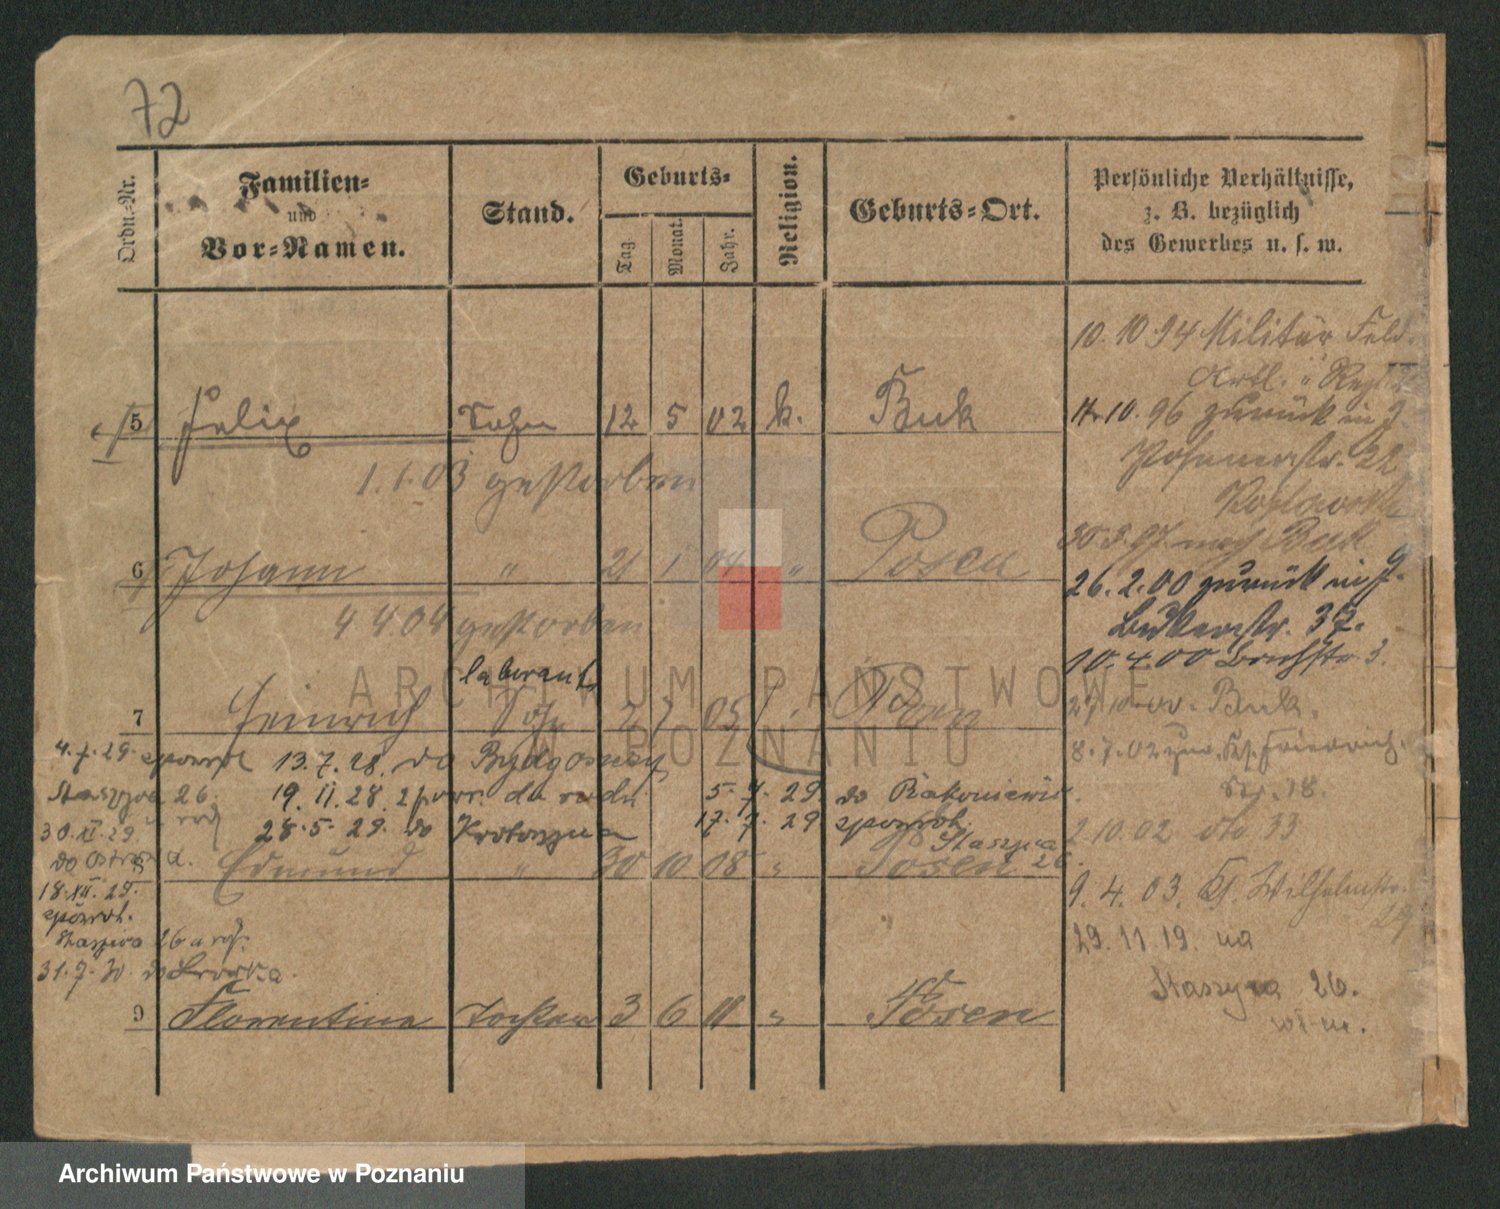 72
Ordn.-Nr.
Familien-
und
Vor-Namen.
Stand.
Geburts-
Tag.
Monat.
Jahr.
Religion.
Geburts-Ort.
Persönliche Verhältnisse,
z. B. bezüglich
des Gewerbes u. s. w.
5 Felix Sohn 12 5 02 k. Buk
1.1.03 gestorben
6 Johann " 21 1 04 " Posen
4 4.04 gestorben
laborant
7 Heinrich Sohn 2 7 05 Posen
4.7.29 spowrot 13.7.28 do Bydgoszczy
Staszyca 26. 19.11.28 do 5.7.29 do Rakoniewic
30.XI.29. 28.5.29 do Krotoszyna 17.7.29 spowrot.
Staszyca 26.
do
8 Edmund " 30 10 08 " Posen
18.XII.29.
spowrot.
Staszica 26 u
31.7.30 do
9 Florentine Tochter 3 6 11 " Posen
10.10 94 Militär Feld.
Artl. Regt.
10.96 zurück in J.
Posenerstr. 22
30.3.97 nach Buk
26.2.00 zurück in J.
Bukerstr. 37.
10.4.00 Bachstr 3.
Buk.
8.7.02 zur. Friedrich
Str. 18.
2.10.02 dto 33
9.4.03. Kl. Wilhelmstr.
29.11.19. na
Staszyca 26.
Archiwum Państwowe
w Poznaniu
Archiwum Państwowe w Poznaniu